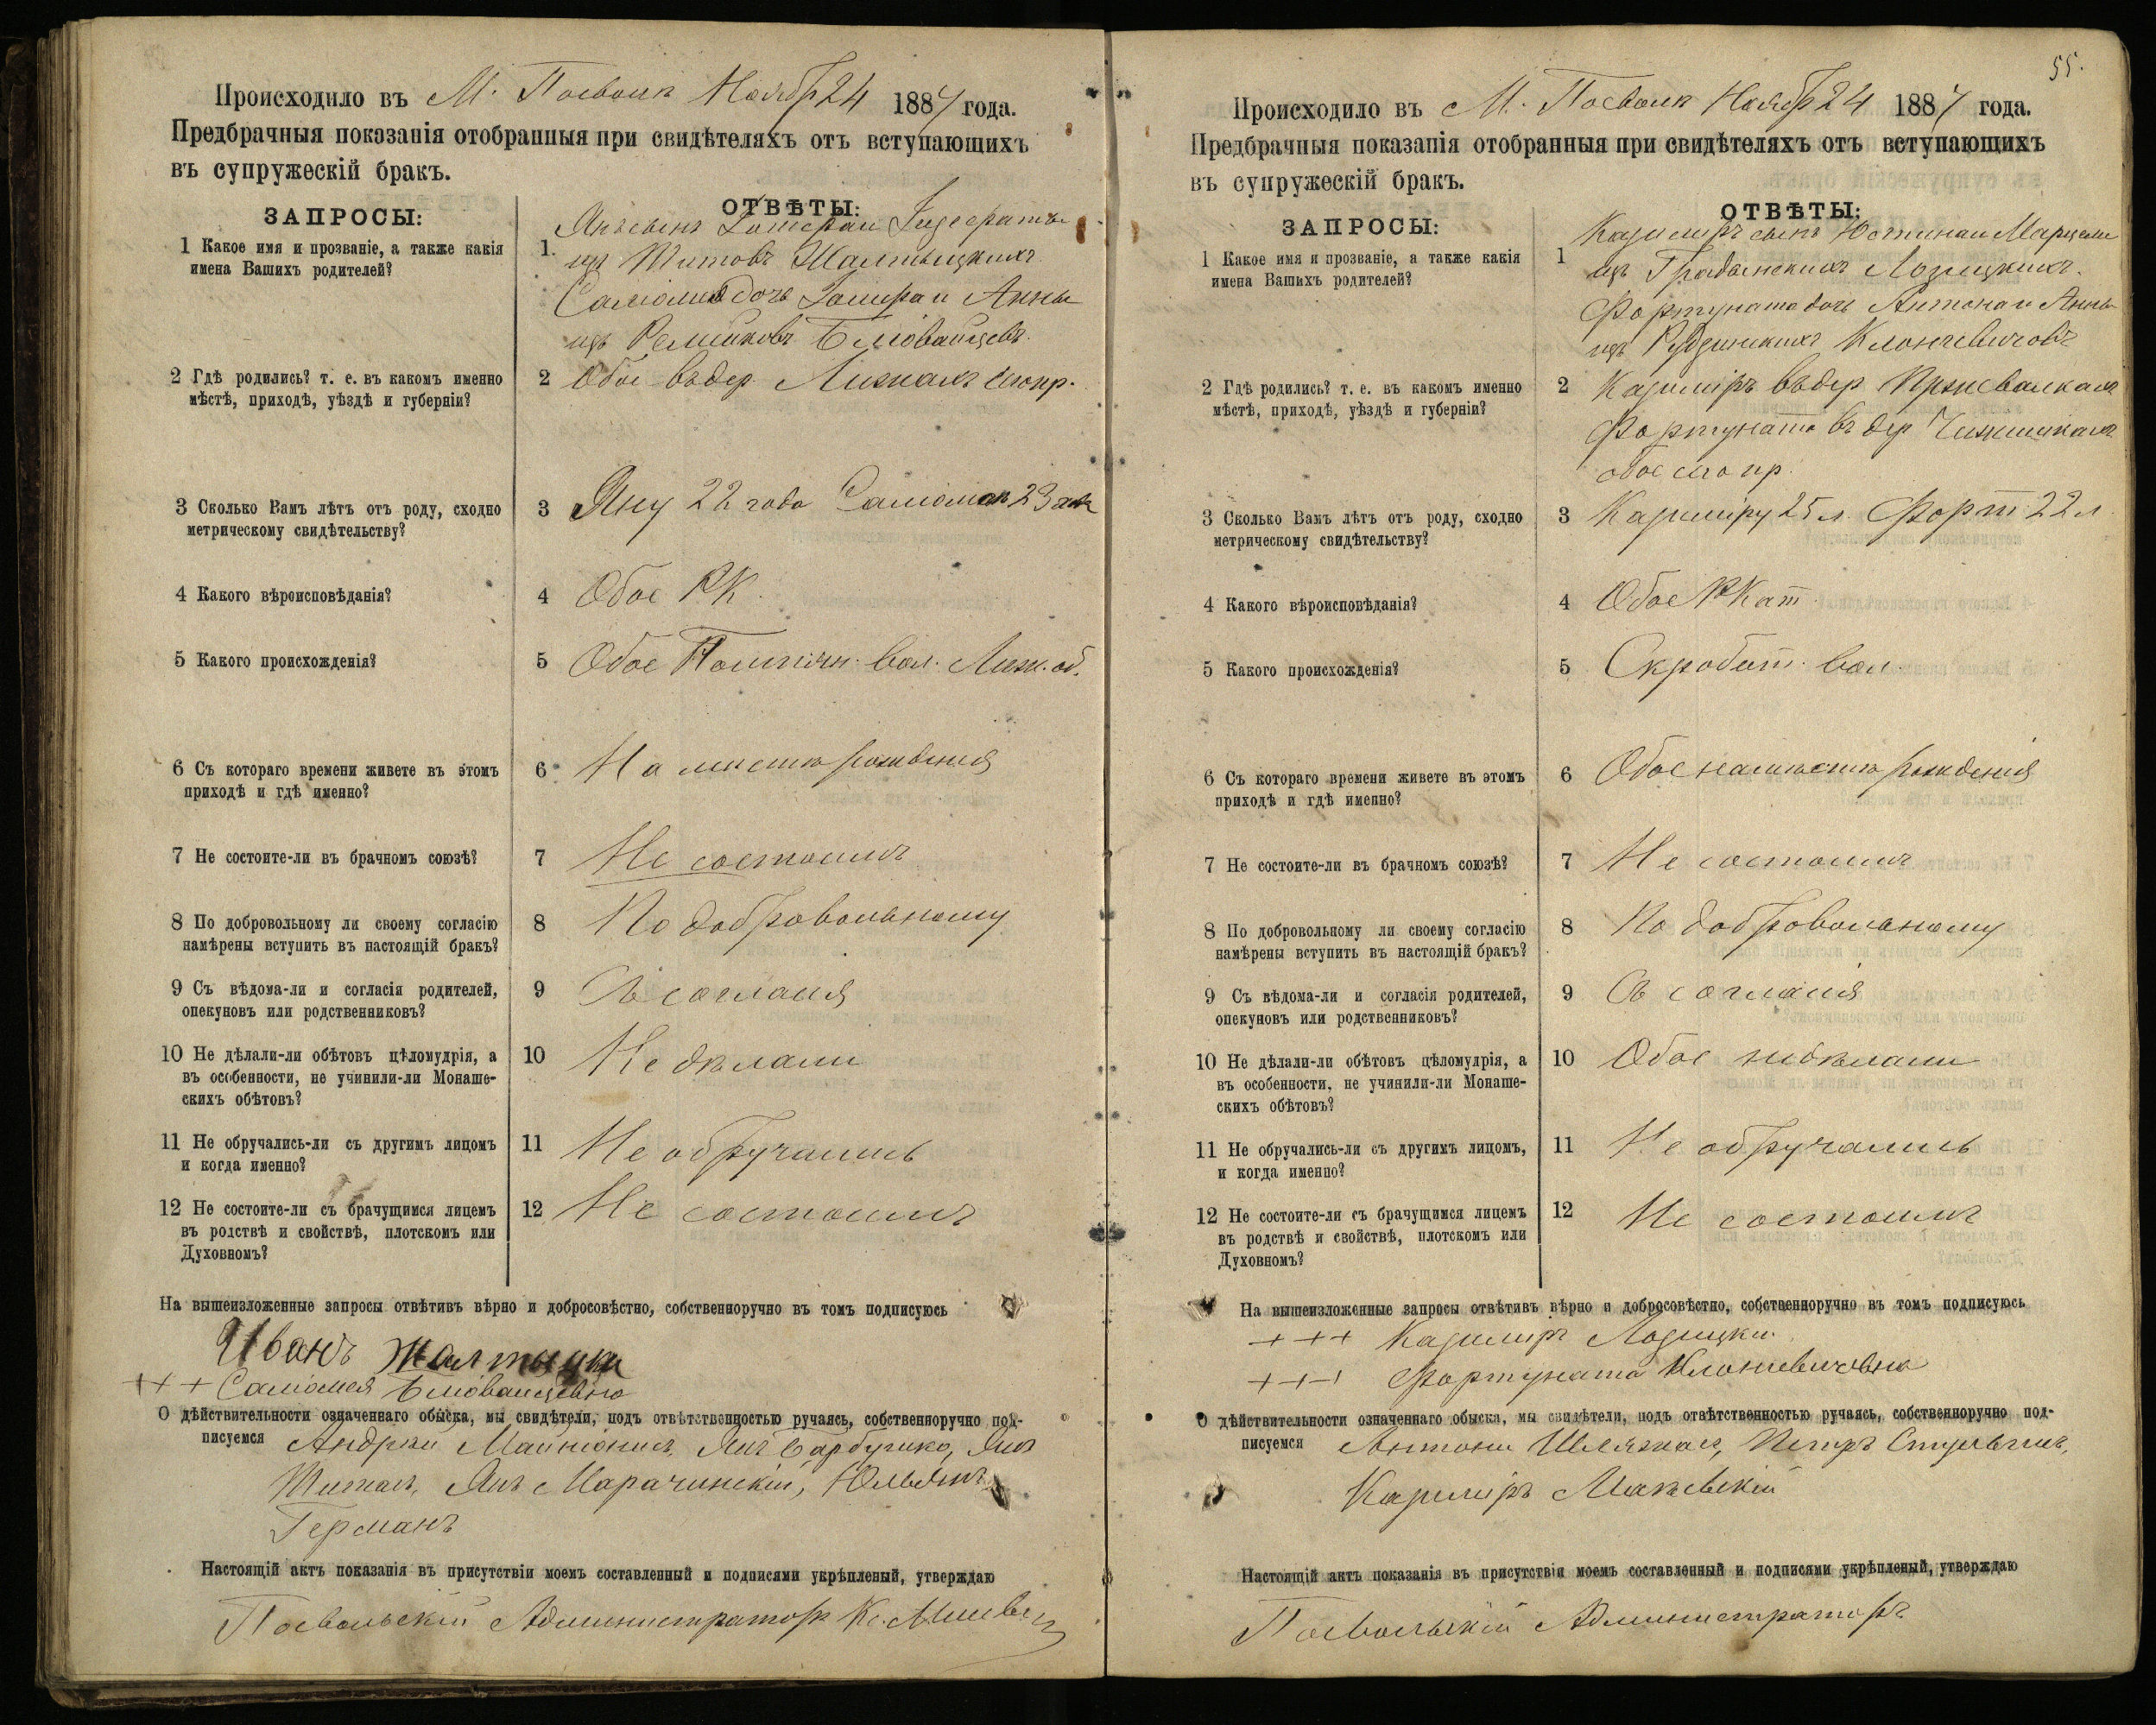 Происходило въ М. Посволь Ноябр 24 1887 года.
Предбрачныя показанія отобранныя при свидѣтеляхъ отъ вступающихъ
въ супружескій бракъ.
ЗАПРОСЫ:
ОТВѢТЫ:
1 Какое имя и прозваніе, а также какія
имена Вашихъ родителей?
1. Янъ сынъ и
изъ Шатовъ
дочь и Анны
изъ
2 Гдѣ родились? т. е. въ какомъ именно
мѣстѣ, приходѣ, уѣздѣ и губерніи?
2 Обое въ дер. пр.
3 Сколько Вамъ лѣтъ отъ роду, сходно
метрическому свидѣтельству?
3 Яну 22 года 23
4 Какого вѣроисповѣданія?
4 Обое РК.
5 Какого происхожденія?
5 Обое вол. об.
6 Съ котораго времени живете въ этомъ
приходѣ и гдѣ именно?
6 На мѣстѣ рожденія
7 Не состоите-ли въ брачномъ союзѣ?
7 Не состоимъ
8 По добровольному ли своему согласію
намѣрены вступить въ настоящій бракъ?
8 По добровольному
9 Съ вѣдома-ли и согласія родителей,
опекуновъ или родственниковъ?
9 Съ согласія
10 Не дѣлали-ли обѣтовъ цѣломудрія, а
въ особенности, не учинили-ли Монаше-
скихъ обѣтовъ?
10 Не дѣлали
11 Не обручались-ли съ другимъ лицомъ
и когда именно?
11 Не обручались
12 Не состоите-ли съ брачущимся лицемъ
въ родствѣ и свойствѣ, плотскомъ или
Духовномъ?
12 Не состоимъ
На вышеизложенные запросы отвѣтивъ вѣрно и добросовѣстно, собственноручно въ томъ подписуюсь
Иванъ
+ + + Саломея
О дѣйствительности означеннаго обыска, мы свидѣтели, подъ отвѣтственностью ручаясь, собственноручно под-
писуемся Андржи Янъ Янъ
Янъ Марачинскій, Юльянъ
Германъ
Настоящій актъ показанія въ присутствіи моемъ составленный и подписями укрѣпленый, утверждаю
Посвольскій Администраторъ Кс.
55.
Происходило въ М. Посволь Ноябр 24 1887 года.
Предбрачныя показанія отобранныя при свидѣтеляхъ отъ вступающихъ
въ супружескій бракъ.
ЗАПРОСЫ:
ОТВѢТЫ:
1 Какое имя и прозваніе, а также какія
имена Вашихъ родителей?
1 Казимиръ сынъ Юстина и
изъ Грабынскихъ Лозицкихъ.
Фортуната дочь Антона и Анны
изъ Рудзинскихъ Клоневичовъ
2 Гдѣ родились? т. е. въ какомъ именно
мѣстѣ, приходѣ, уѣздѣ и губерніи?
2 Казиміръ въ дер
Фортуната въ дер
обое пр.
3 Сколько Вамъ лѣтъ отъ роду, сходно
метрическому свидѣтельству?
3 Казиміру 25 л. Форт 22 л.
4 Какого вѣроисповѣданія?
4 Обое Р Кат.
5 Какого происхожденія?
5 Скробот. вол.
6 Съ котораго времени живете въ этомъ
приходѣ и гдѣ именно?
6 Обое на мѣстѣ рожденія
7 Не состоите-ли въ брачномъ союзѣ?
7 Не состоимъ
8 По добровольному ли своему согласію
намѣрены вступить въ настоящій бракъ?
8 По добровольному
9 Съ вѣдома-ли и согласія родителей,
опекуновъ или родственниковъ?
9 Съ согласія
10 Не дѣлали-ли обѣтовъ цѣломудрія, а
въ особенности, не учинили-ли Монаше-
скихъ обѣтовъ?
10 Обое недѣлали
11 Не обручались-ли съ другимъ лицомъ,
и когда именно?
11 Не обручались
12 Не состоите-ли съ брачущимся лицемъ
въ родствѣ и свойствѣ, плотскомъ или
Духовномъ?
12 Не состоимъ
На вышеизложенные запросы отвѣтивъ вѣрно и добросовѣстно, собственноручно въ томъ подписуюсь
+ + + Казимиръ Лозицки.
+ + + Фортуната Клоневичовна
О дѣйствительности означеннаго обыска, мы свидѣтели, подъ отвѣтственностью ручаясь, собственноручно под-
писуемся Антони Петръ
Казиміръ
Настоящій актъ показанія въ присутствія моемъ составленный и подписями укрѣпленый, утверждаю
Посвольскій Администраторъ